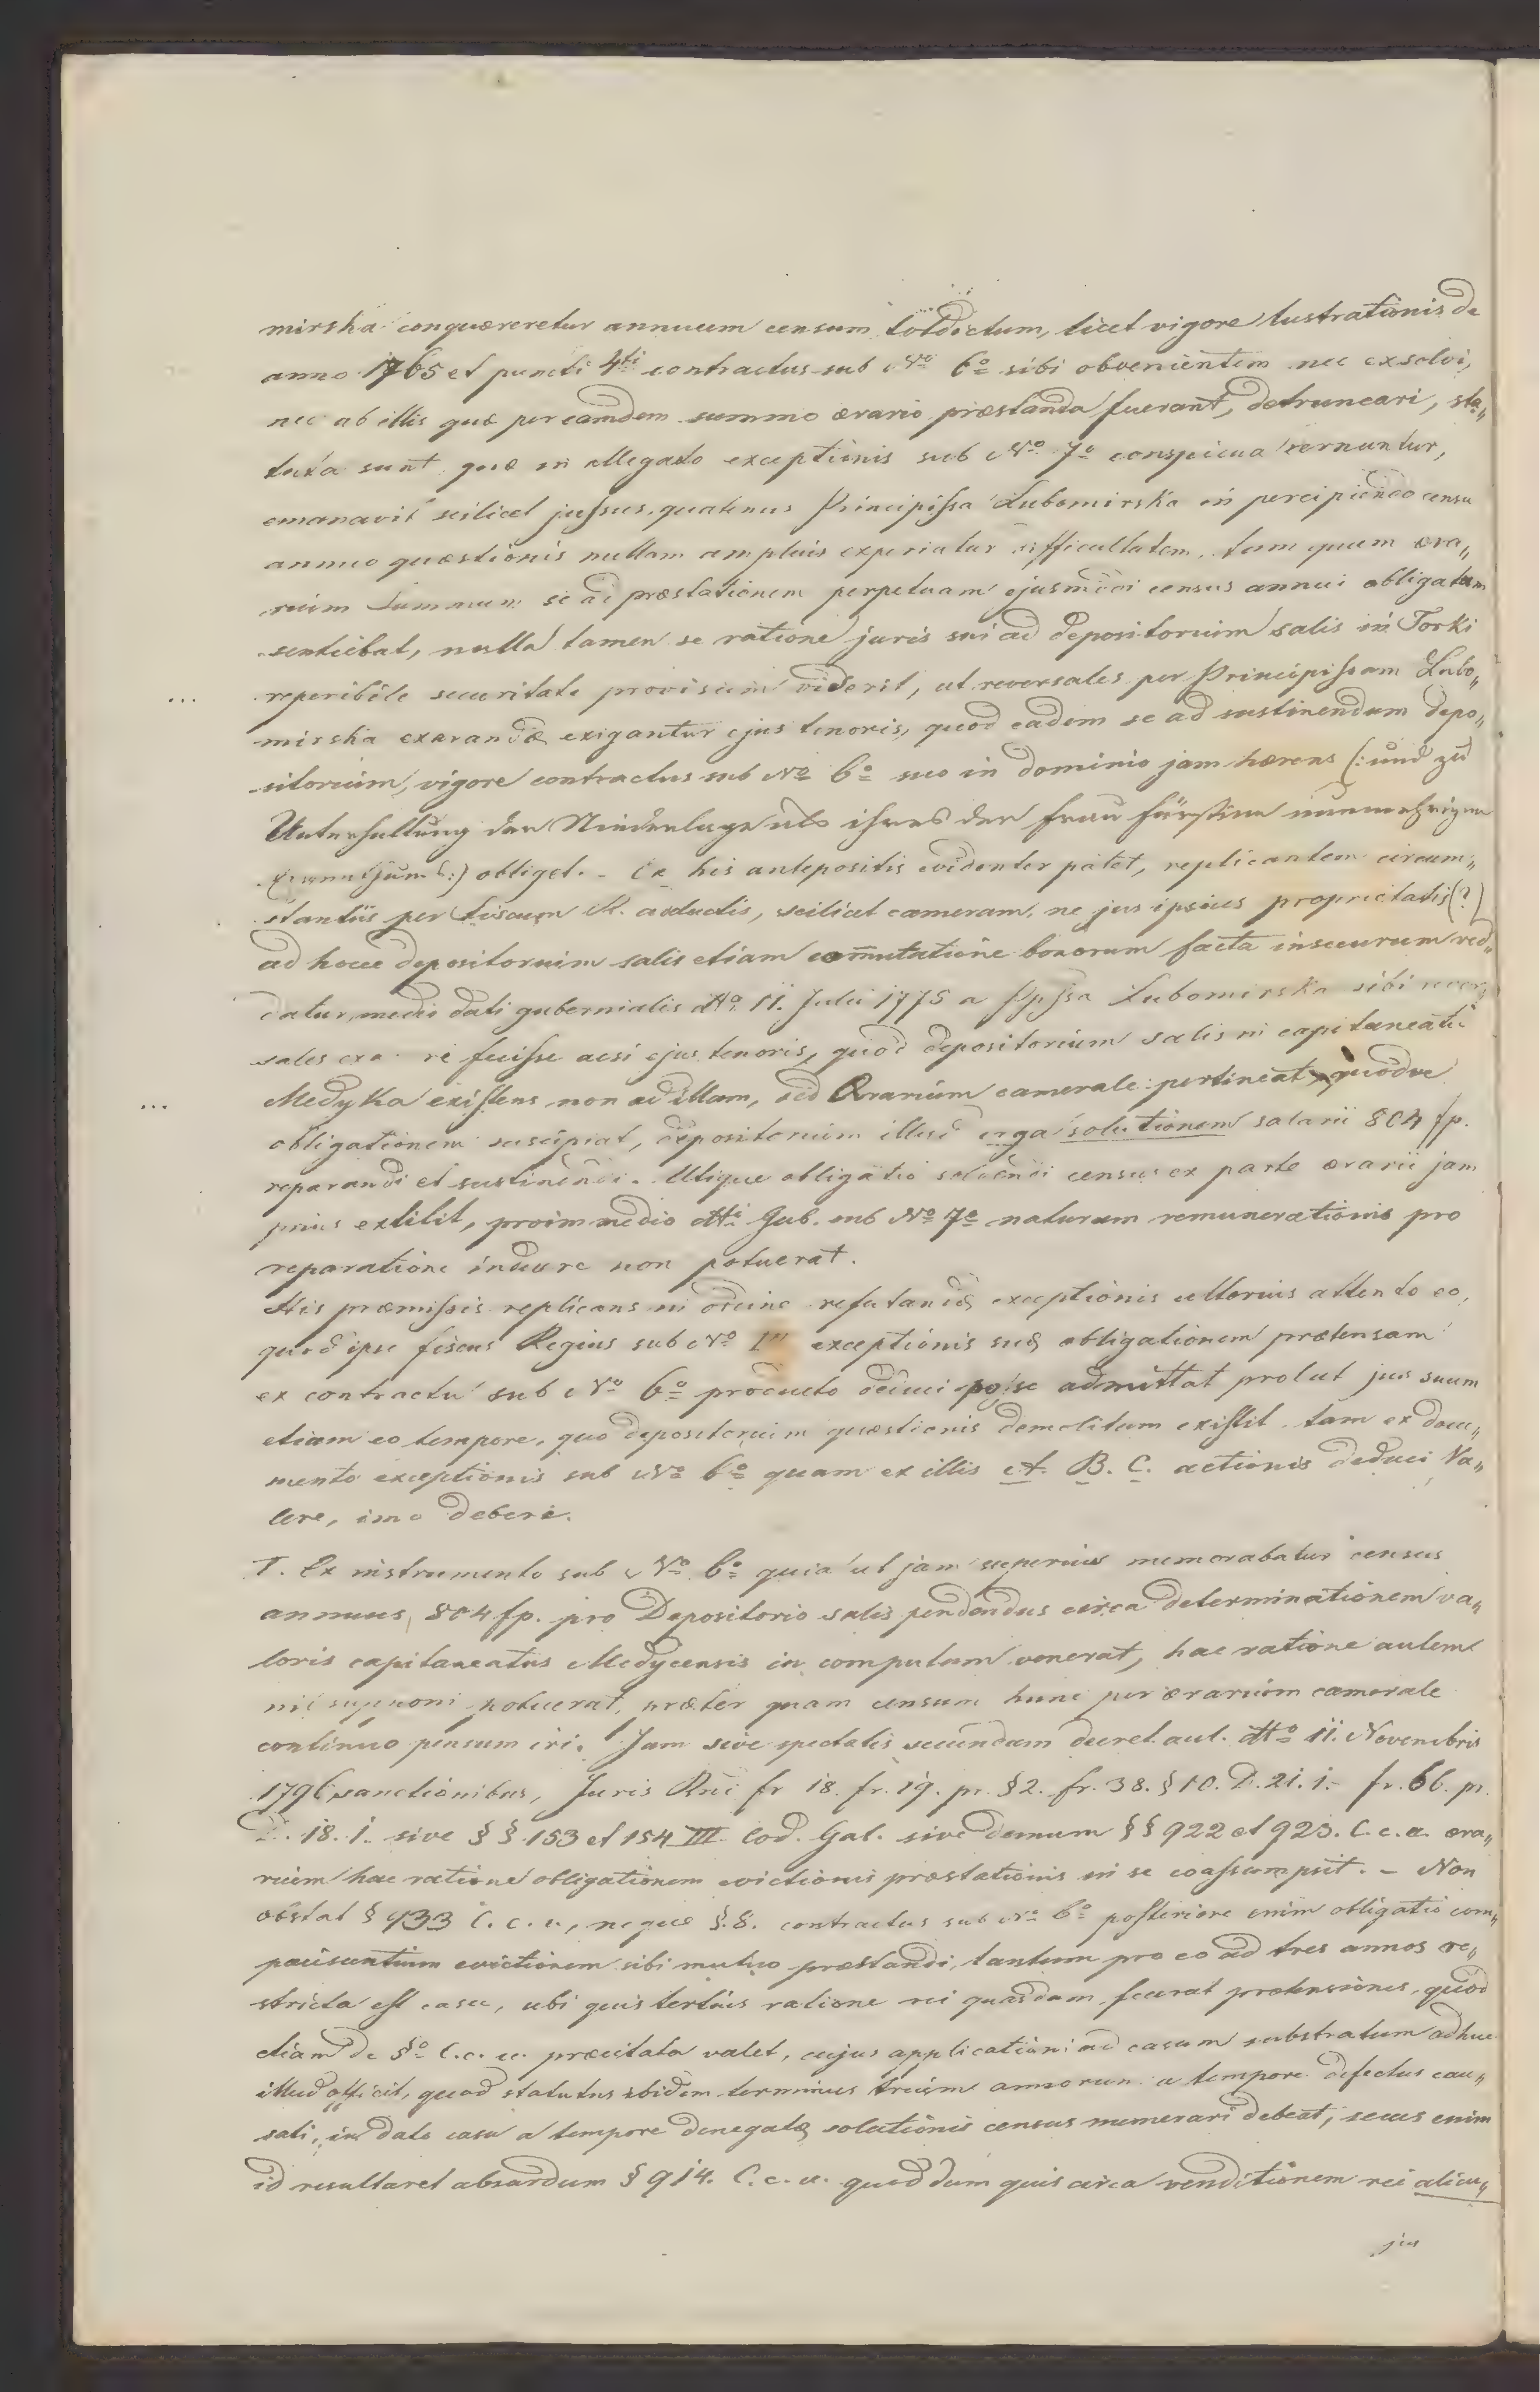 mirska conquæreretur annuum censum totdictum, licet vigore lustrationis de
anno 1765 et puncti 4ti contractus sub No 6o sibi obvenientem nec exsolvi,
nec ab illis quæ per eamdem summo ærario præstanda fuerant, detruncari, sta„
tuta sunt quæ in allegato exceptionis sub No 7o conspicua cernuntur,
emanavit scilicet jussus, quatenus Principissa Lubomirska in percipiendo censu
annuo quæstionis nullam amplius experiatur difficultatem, tum quum æra„
rium summum se ad præstationem perpetuam ejusmodi census annui obligatum
sentiebat, nulla tamen se ratione juris sui ad depositorium salis in Torki
reperibile securitate provisum viderit, ut reversales per Principissam Lubo„
mirska exarandæ exigantur ejus tenoris, quod eadem se ad sustinendum depo„
sitorium, vigore contractus sub No 6o suo in dominio jam hærens (: und zu
Unterhaltung der Niederlage als ihres der Frau Fürstin nunmehrigen
:) obliget. - Ex his antepositis evidenter patet, replicantem circum„
stantiis per Fiscum R. adductis, scilicet cameram, ne jus ipsius proprietatis (?)
ad hocce depositorium salis etiam com̄utatione bonorum facta insecurum red„
datur, medio dati gubernialis dto 11. Julii 1775 a Ppssa Lubomirska sibi rever„
sales exa re fecisse acsi ejus tenoris, quod depositorium salis in capitaneatu
Medyka existens non ad illam, sed Ærarium camerale pertineat, quodve
obligationem suscipiat, depositorium illud erga solutionem salarii 804 fp.
reparandi et sustinendi. Utique obligatio solvendi census ex parte ærarii jam
prius extitit, proim medio dtti Gub. sub No 7o naturam remunerationis pro
reparatione induere non potuerat.
His præmissis replicans in ordine refutandæ exceptionis ulterius attento eo,
quod ipse fiscus Regius sub No 1mo exceptionis suæ obligationem prætensam
ex contractu sub No 6o producto deduci posse admittat prolut jus suum
etiam eo tempore, quo depositorium quæstionis demolitum existit tam ex docu„
mento exceptionis sub No 6o quam ex illis A. B. C. actionis deduci va„
lere, imo debere.
I. Ex instrumento sub No 6o quia ut jam superius memorabatur census
annuus 804 fp. pro Depositorio salis pendendus circa determinationem va„
loris capitaneatus Medycensis in computum venerat, hac ratione autem
nil supponi potuerat, præter quam censum hunc per ærarium camerale
continuo pensum iri. Jam sive spectatis secundum decret. aul. dto 11. Novembris
1796 sanctionibus, Juris Rni fr 18. fr. 19. pr. §2. fr. 38. §10. D. 21. 1.- fr. 66. pr.
D. 18. 1. sive §§ 153 et 154 III Cod. Gal. sive demum §§ 922 et 923. C. c. a. æra„
rium hac ratione obligationem evictionis præstationis in se coassumpsit. - Non
obstat § 933 C. c. u., neque §. 8. contractus sub No 6o posteriore enim obligatio com„
paciscentium evictionem sibi mutuo præstandi, tantum pro eo ad tres annos re„
stricta est casu, ubi quis tertius ratione rei quasdam fecerat prætensiones, quod
etiam de §o C. c. u. præcitata valet, cujus applicationi ad casum substratum adhuc
illud officit, quod statutus ibidem terminus trium annorum a tempore defectus cau„
sati, in dato casu a tempore denegatæ solutionis census numerari debeat, secus enim
id resultaret absurdum § 914. C. c. u. quod dum quis circa venditionem rei alicu„
jus